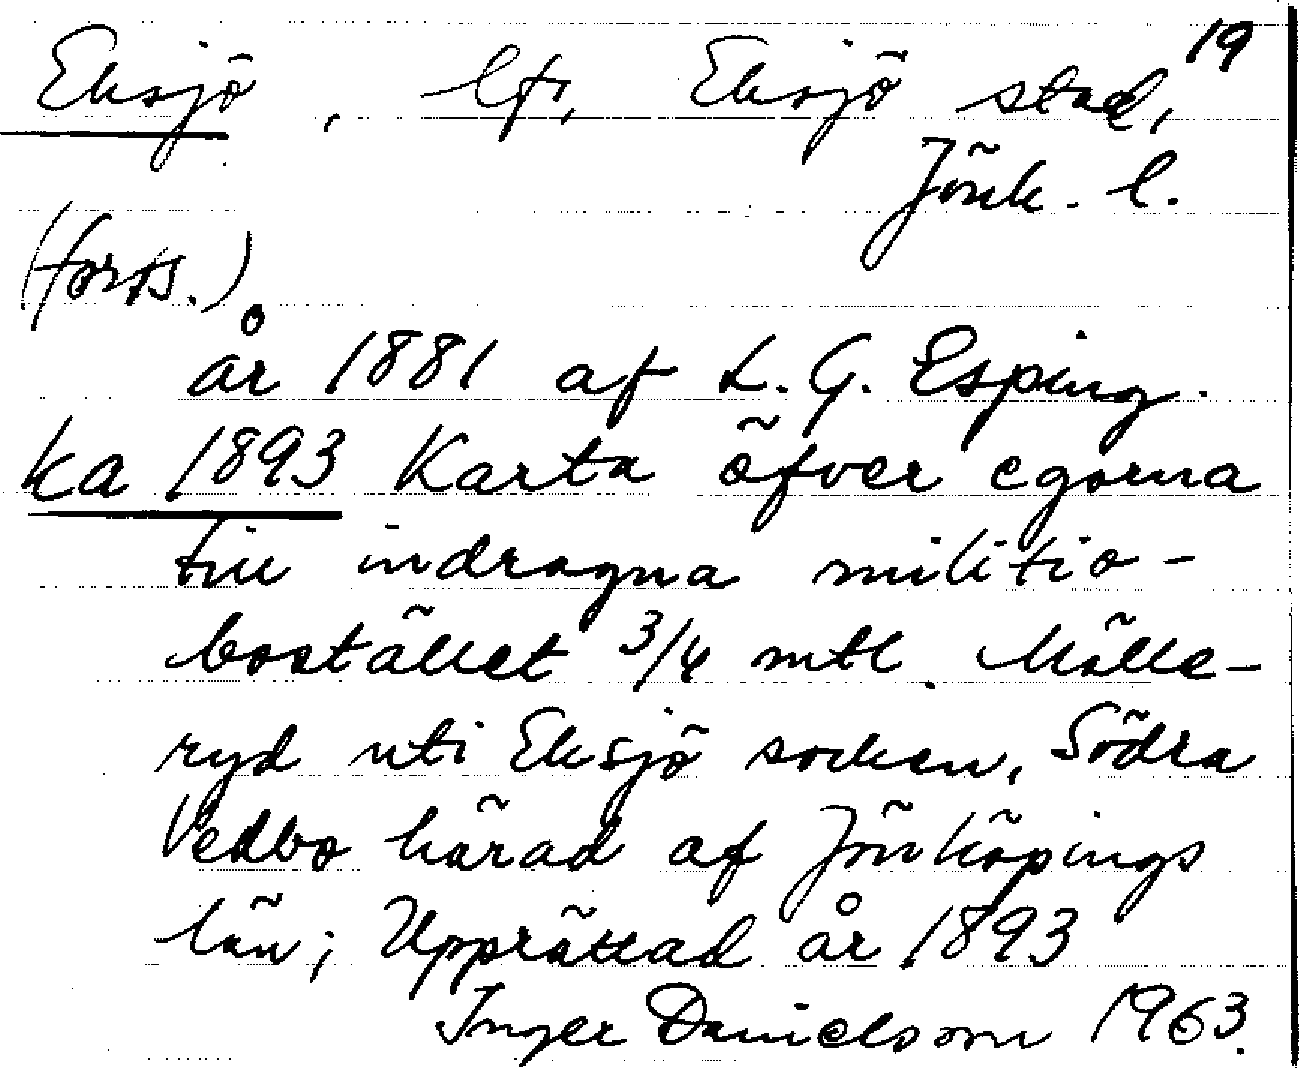 19
Eksjö, lfs, Eksjö stad,
Jönk. l.
(forts.)
år 1881 af L. G. Esping.
ka 1893 Karta öfver egorna
till indragna militie-
bostället 3/4 mtl. Målle-
ryd uti Eksjö socken, Södra
Vedbo härad af Jönköpings
län; Upprättad år 1893
Inger Danielsson 1963.